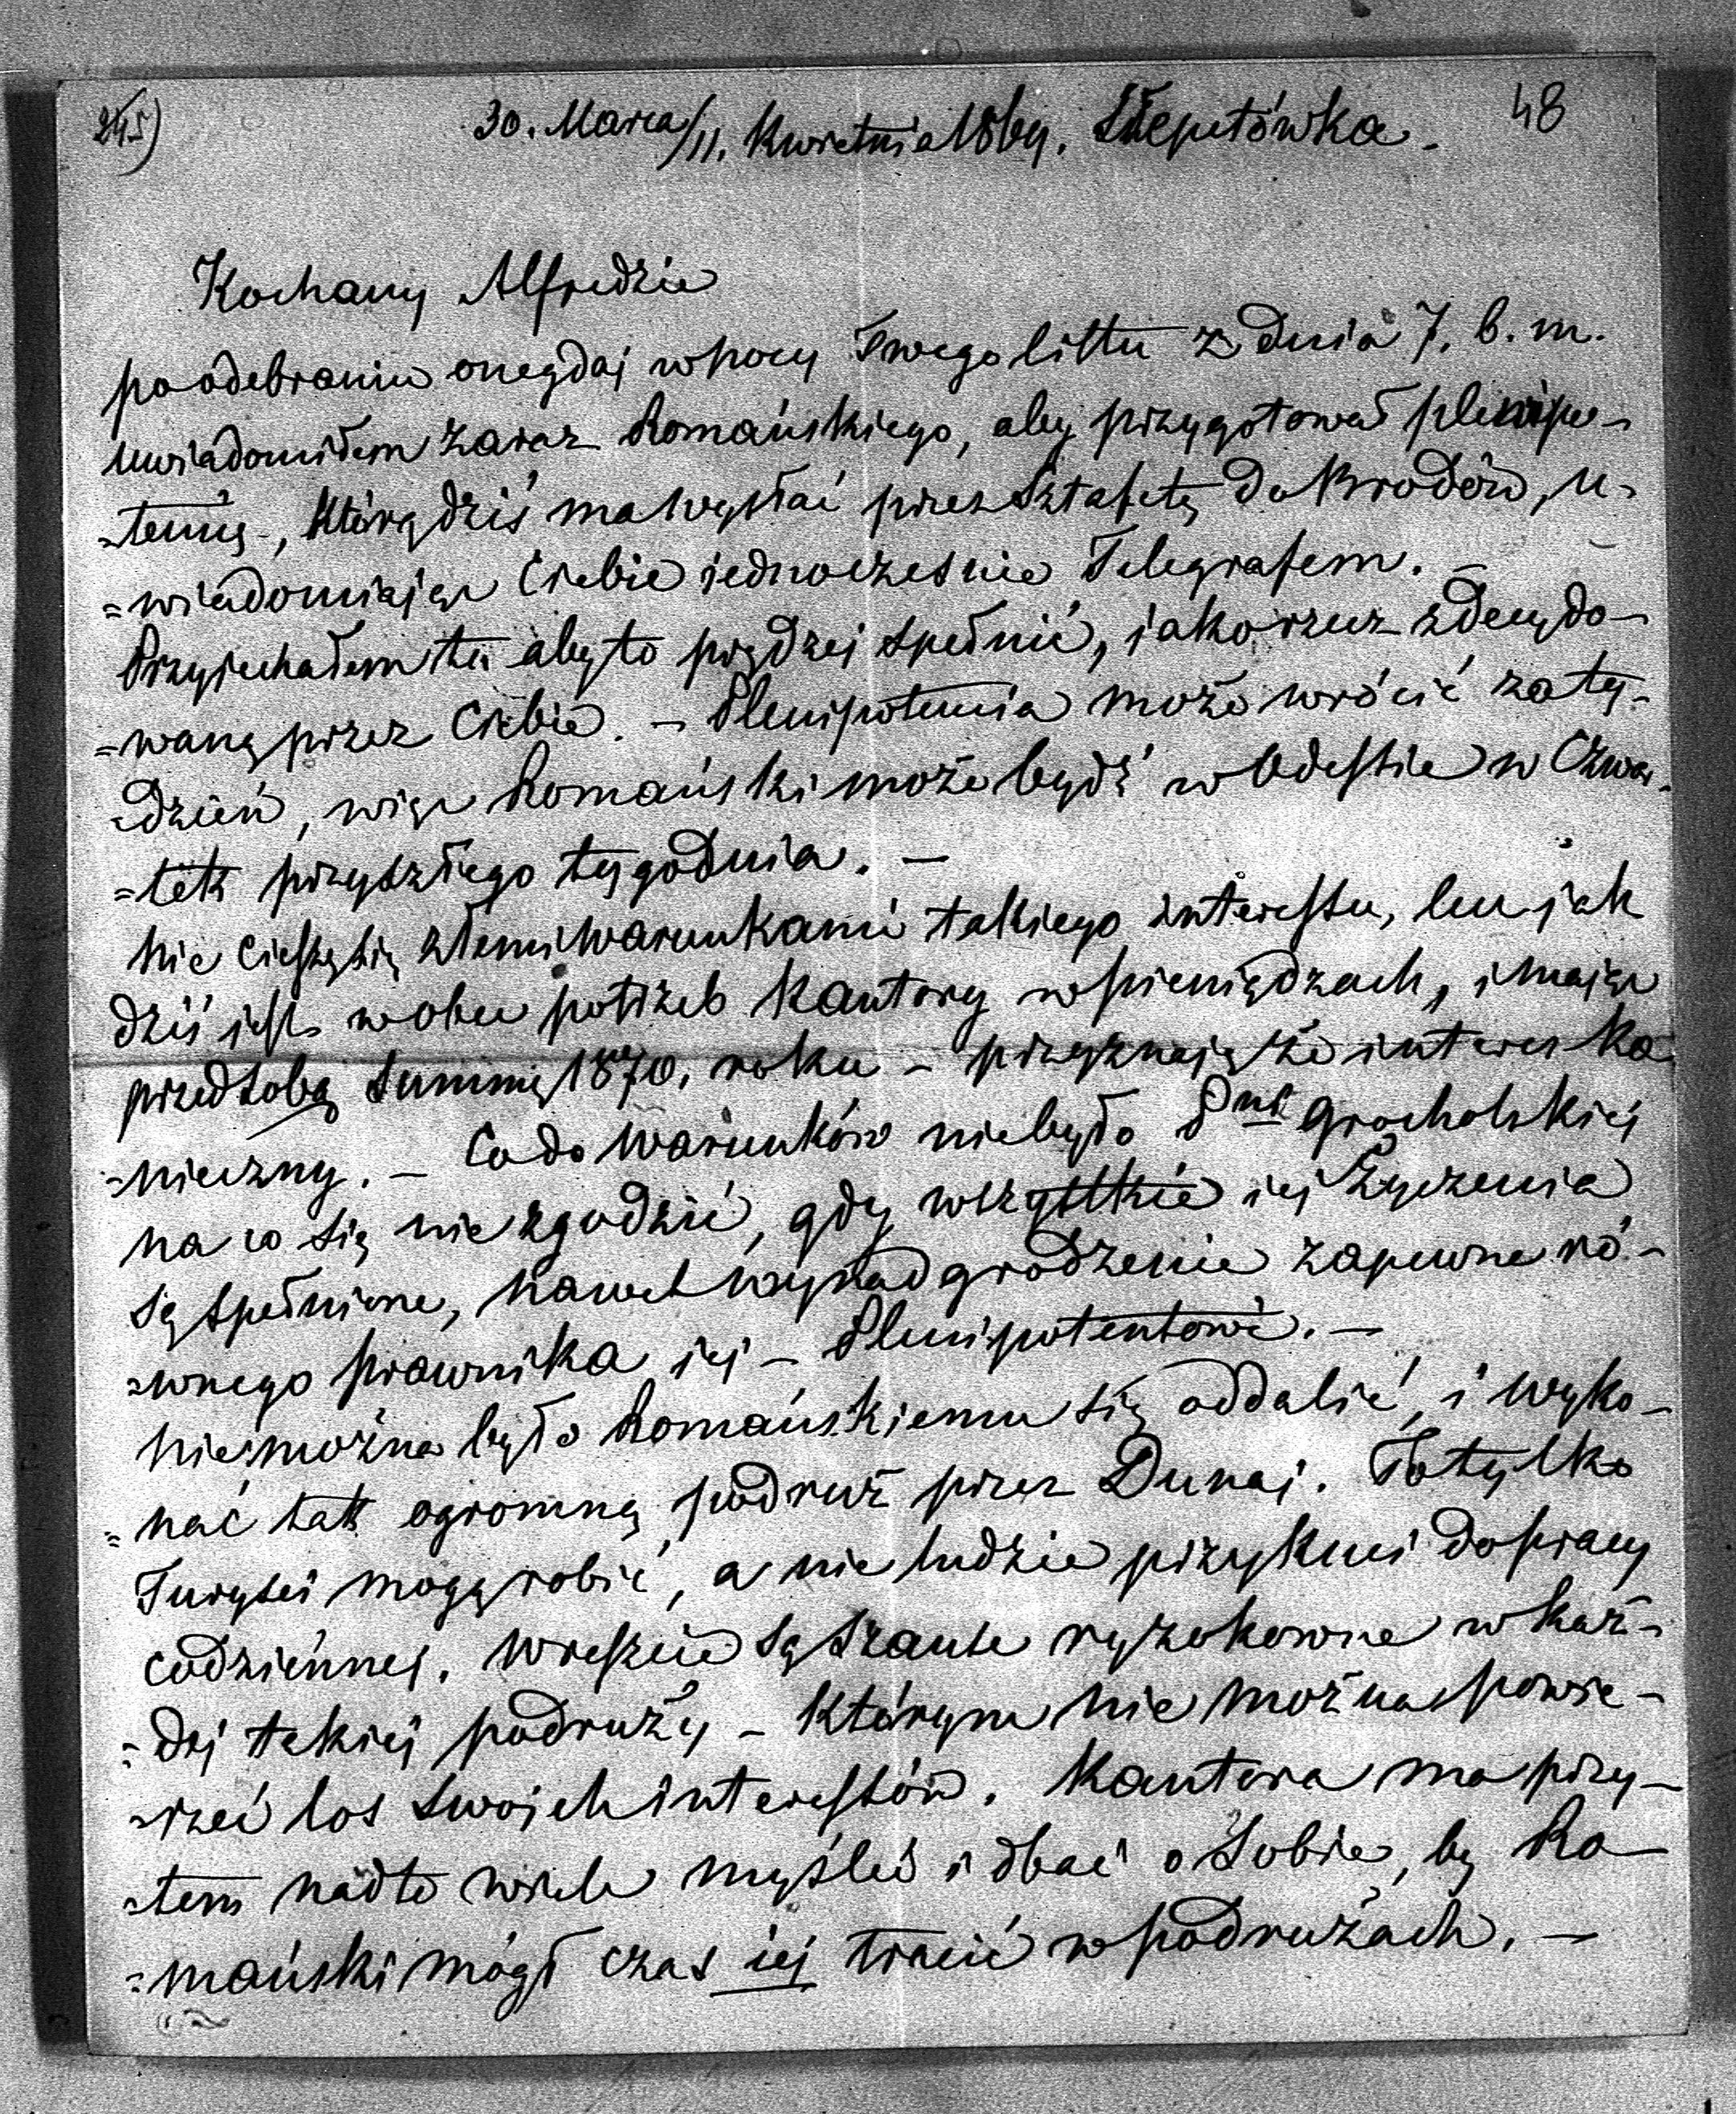 245) 30. Marca/11. Kwietnia 1869. Szepetówka. 48
Kochany Alfredzie
po odebraniu onegdaj w nocy Twego listu z dnia 7. b. m.
uwiadomiłem zaraz Romańskiego, aby przygotował plenipo-
-tencię, którą dziś ma wysłać przez Sztafetę do Brodów, u-
=wiadomiając Ciebie jednocześnie Telegrafem. -
Przyjechałem tu aby to prędzej spełnić, jako rzecz zdecydo-
=waną przez Ciebie. - Plenipotencia może wrócić za ty-
-dzień, więc Romański może bydź w Odessie w Czwar-
=tek przyszłego tygodnia. -
Nie cieszę się złemi warunkami takiego interessu, lecz jak
dziś jest wobec potrzeb Kantory w pieniądzach, i mając
przed sobą summę 1870. roku - przyznaję że interes ko-
-nieczny. - Co do warunków niebyło Pni Grocholskiej
na co się nie zgodzić, gdy wszystkie jej życzenia
są spełnione, nawet wynadgrodzenie zapewne ró-
-wnego prawnika jej - Plenipotentowi. -
Nie można było Romańskiemu się oddalić, i wyko-
=nać tak ogromną podruż przez Dunaj. To tylko
Turyści mogą robić, a nie ludzie przykuci do pracy
codziennej. Wreszcie są szanse ryzokowne w każ-
-dej takiej podruży - którym nie można powie-
-rzeć los swoich interessów. Kantora ma przy-
-tem nadto wiele myśleć i dbać o Sobie, by Ro-
=mański mógł czas jej tracić w podrużach. -